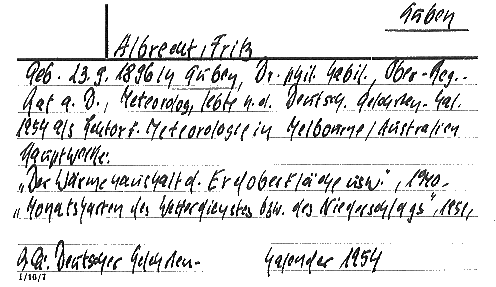 Guben
Albrecht, Fritz
Geb. 13.9.1896 in Guben, Dr. phil. habil., Ober-Reg.-
Rat a. D., Meteorolog, lebte n. d. Deutsch. Gelehrten-Kal.
1954 als Lektor f. Meteorologie in Melbourne/Australien
Hauptwerke:
„Der Wärmehaushalt d. Erdoberfläche usw.", 1940.
„Monatskarten des Wetterdienstes bzw. des Niederschlags", 1951,
Deutscher Gelehrten- Kalender 1954
1/10/7